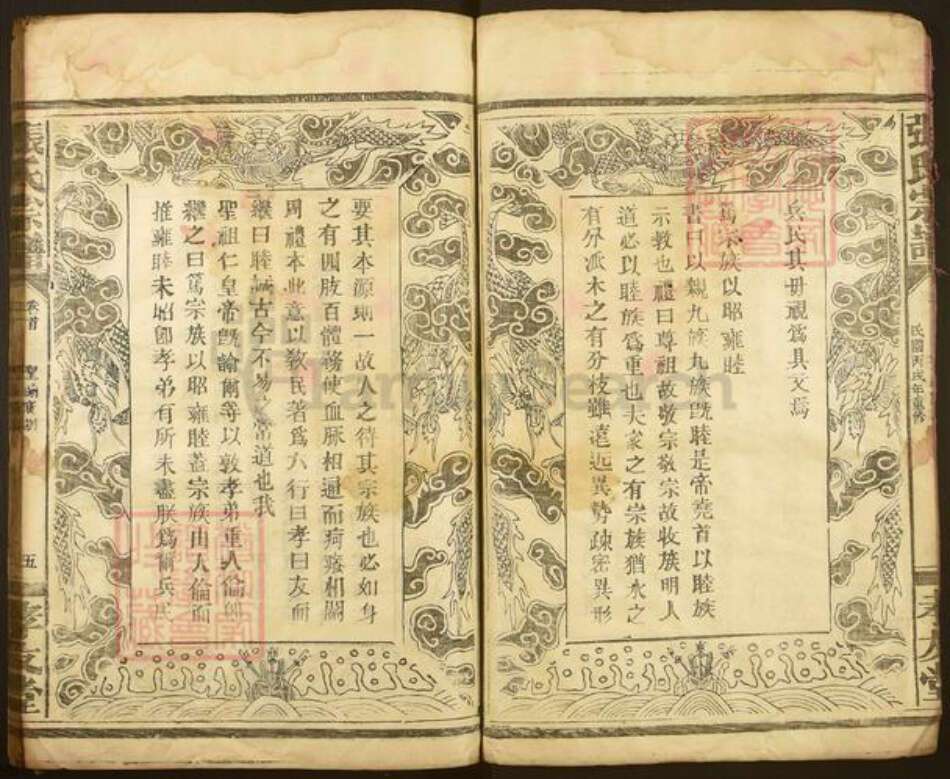 張氏宗譜
民國丙戌年重修
孝友堂
兵民其毋視爲具文焉
篤宗族以昭雍睦
書曰以親九族九族旣睦是帝堯首以睦族
示教也禮曰尊祖故敬宗敬宗故收族明人
道必以睦族爲重也夫家之有宗族猶水之
有分派木之有分枝雖遠近異勢疎密異形
要其本源則一故人之待其宗族也必如身
之有四肢百體務使血脈相通而疴癢相關
周禮本此意以教民著爲六行曰孝曰友而
繼曰睦誠古今不易之常道也我
聖祖仁皇帝旣諭爾等以敦孝弟重人倫卽
繼之曰篤宗族以昭雍睦蓋宗族由人倫而
推雍睦未昭卽孝弟有所未盡朕爲爾兵民
張氏宗譜
卷首
聖諭廣訓
五
孝友堂